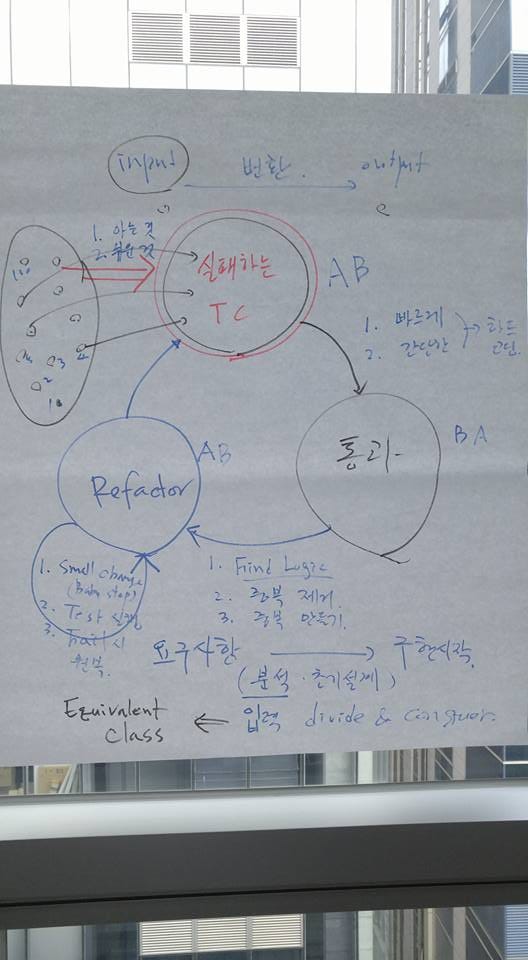 input 변환 output
1. 아는 것
2. 쉬운 것
실패하는
TC
AB
1. 빠르게
2. 간단한
하드
코딩
통과
BA
Refactor
AB
1. Small change
(Baby step)
2. Test 실행
3. Fail 시
원복
1. Find Logic
2. 중복 제거
3. 중복 만들기
요구사항 구현시작
(분석 · 초기설계)
입력 divide & conquer
Equivalent
class